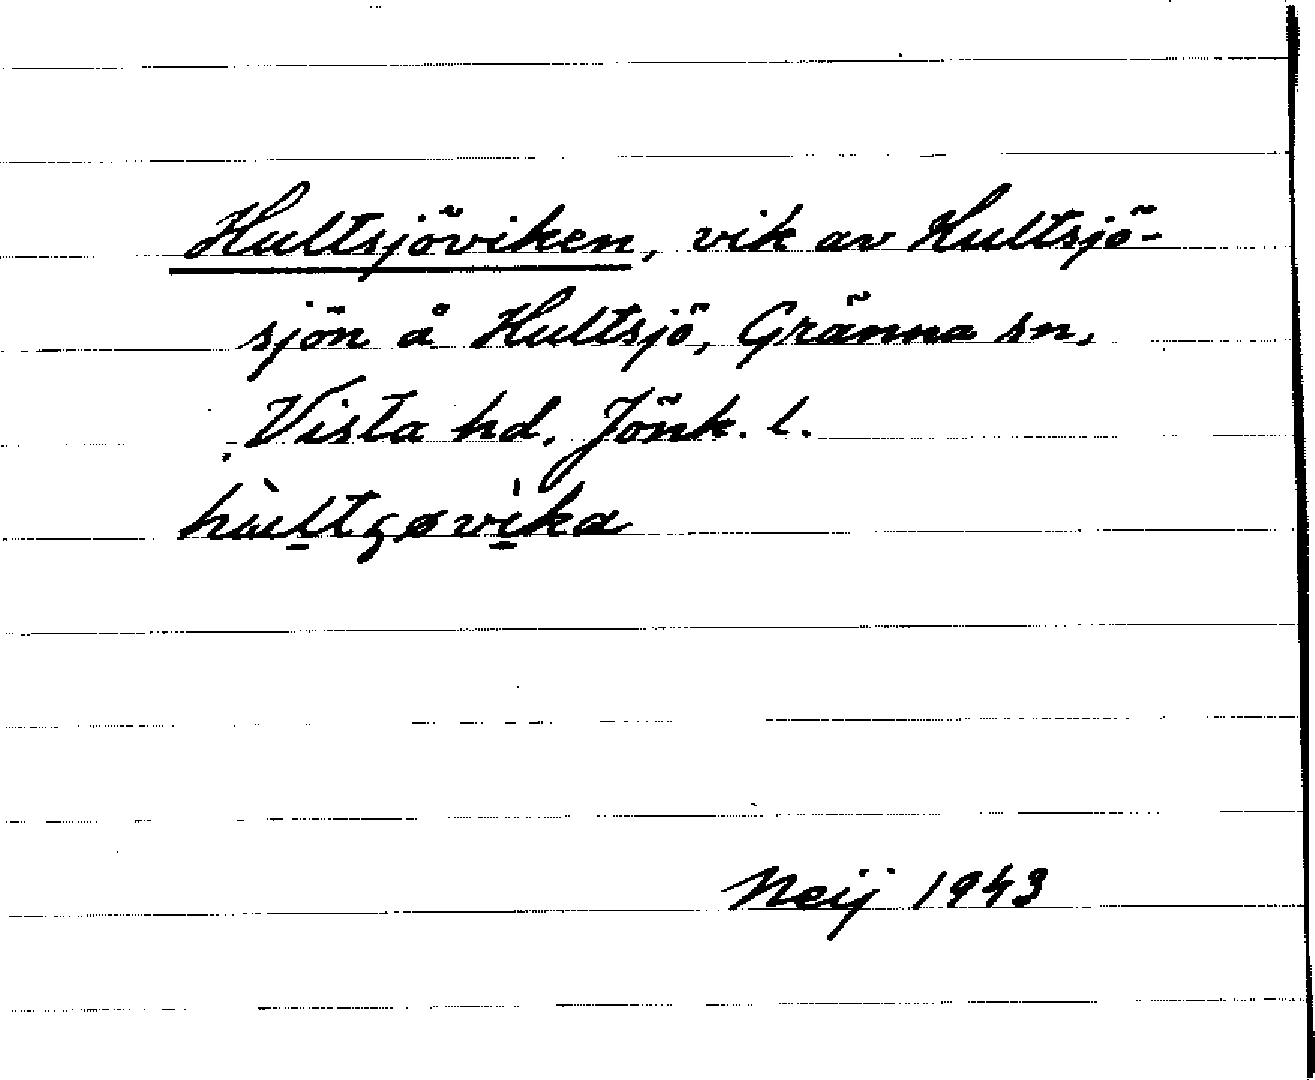 Hultsjöviken, vik av Hultsjö-
sjön å Hultsjö, Gränna sn,
Vista hd, Jönk. l.
Neij 1943